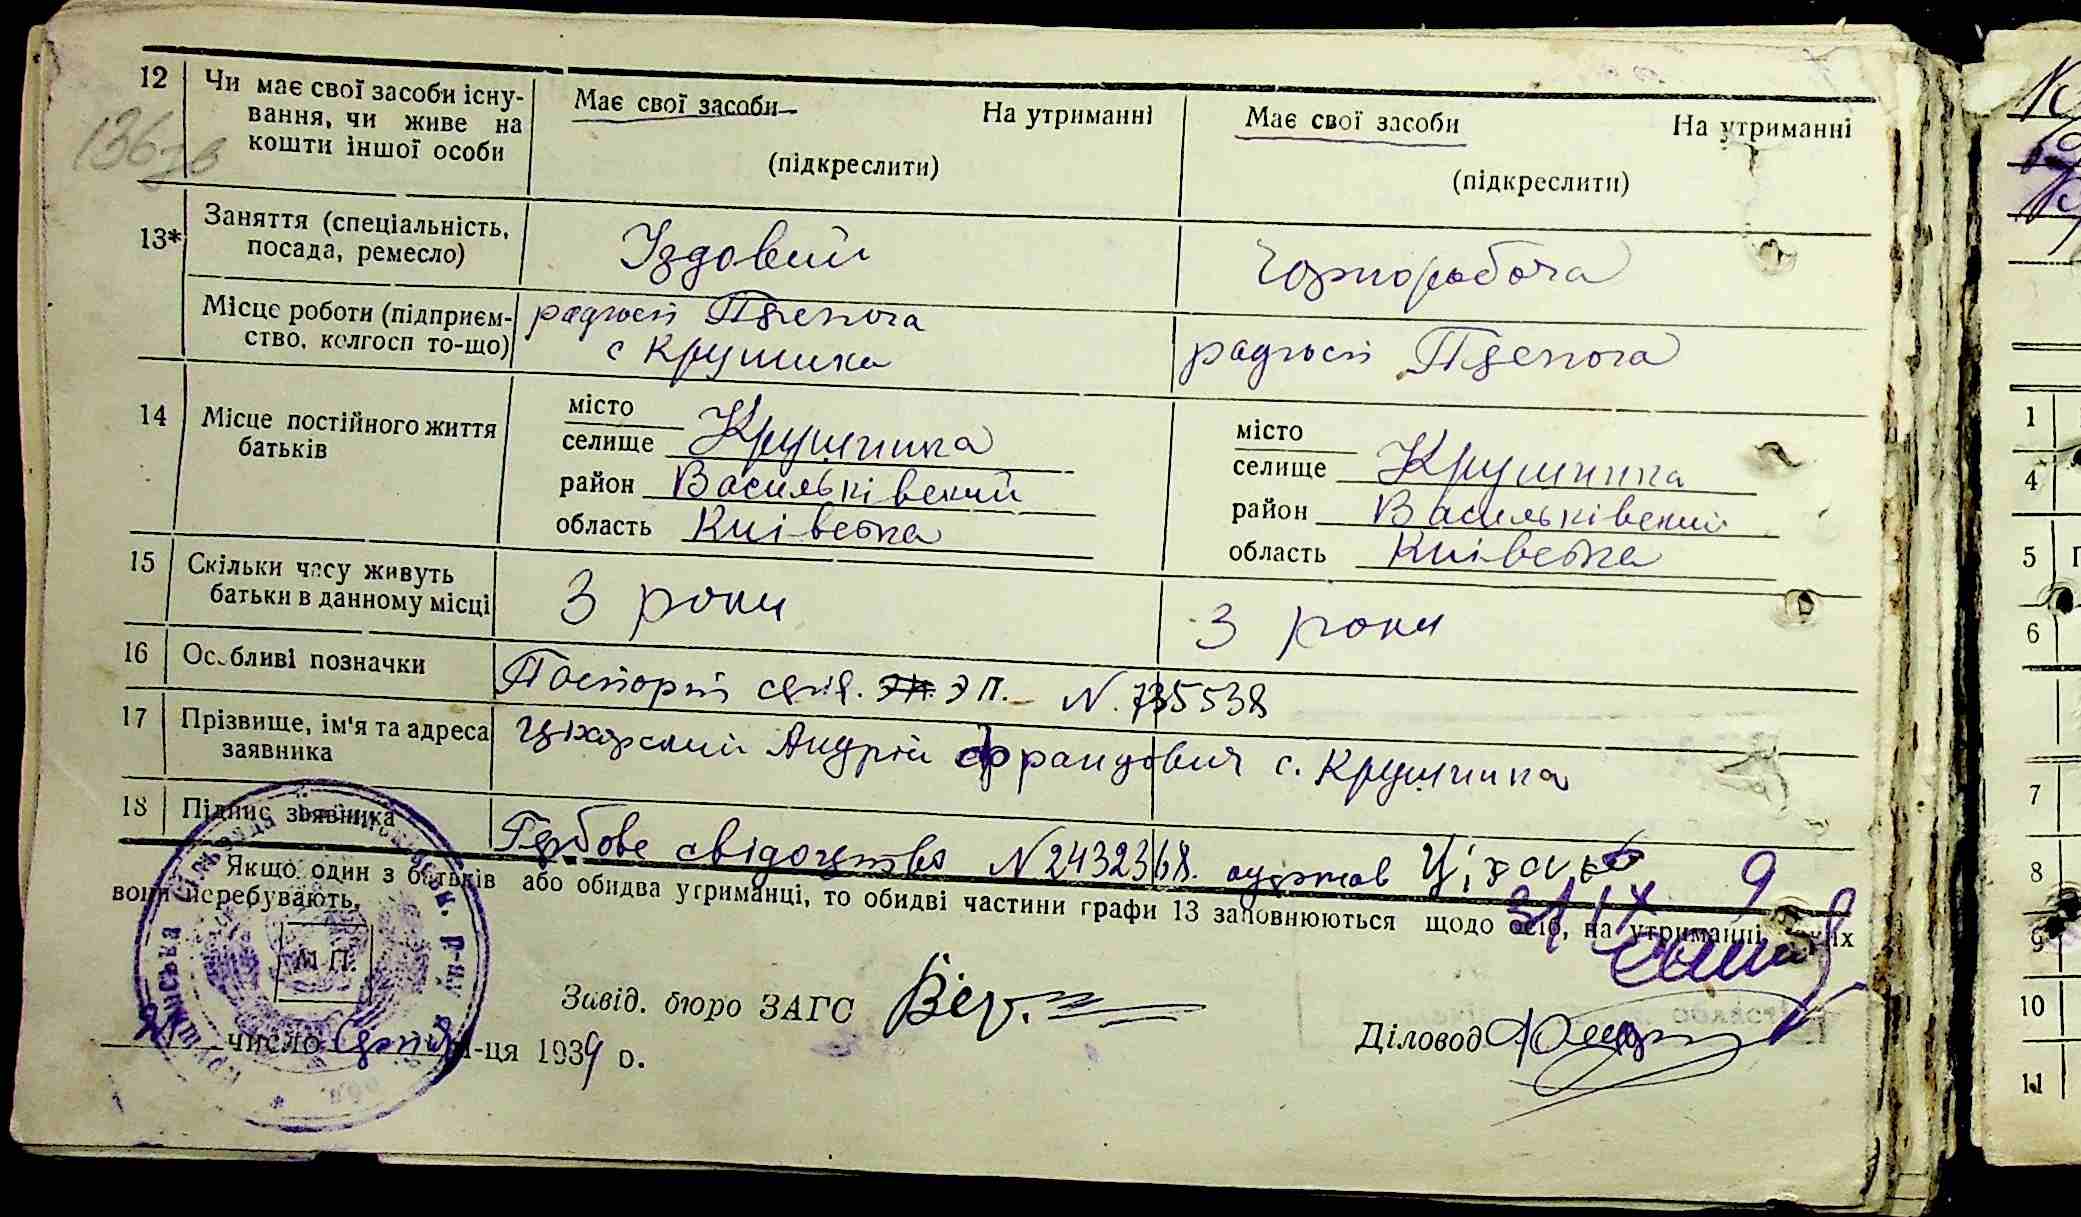 12 Чи має свої засоби існу-
вання, чи живе на
кошти іншої особи
Має свої засоби На утриманні
(підкреслити)
Має свої засоби На утриманні
(підкреслити)
13* Заняття (спеціальність,
посада, ремесло)
Їздовий
Чорноробоча
Місце роботи (підприєм-
ство, колгосп то-що)
радгосп
с Крушинка
радгосп
14 Місце постійного життя
батьків
місто
селище Крушинка
район Васильківский
область Київська
місто
селище Крушинка
район Васильківский
область Київська
15 Скільки часу живуть
батьки в данному місці
3 роки
3 роки
16 Особливі позначки
Паспорт серія. ЭП. N. 735538
17 Прізвище, ім'я та адреса
заявника
Андрій Францович с. Крушинка
18 Підпис заявника
Гербове свідоцтво N 2432368. одержав
Якщо один з батьків або обидва утриманці, то обидві частини графи 13 заповнюються щодо осіб, на утриманні яких
вони перебувають.
М П.
Завід. бюро ЗАГС
число Серпня м-ця 1939 о.
Діловод
1
4
5
6
7
8
9
10
11